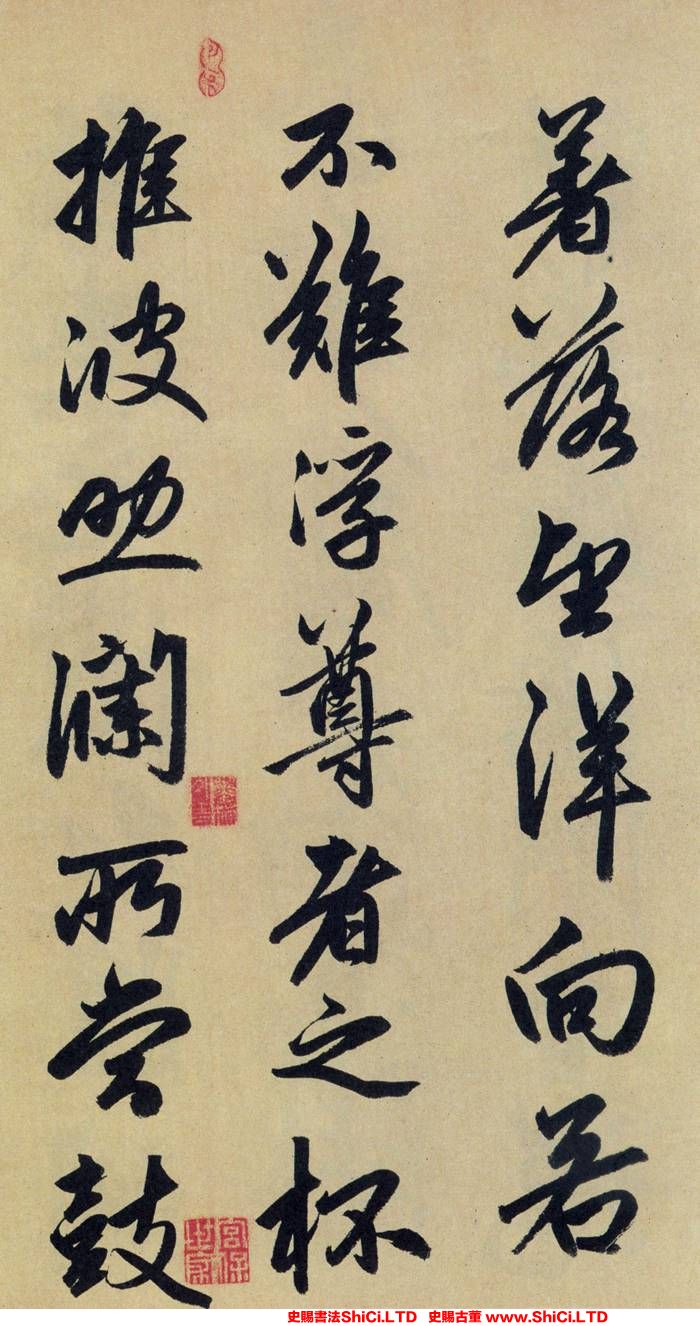 著落望洋向若
不難浮尊者之杯
推波助瀾所嘗鼓
史賜書法ShiCi.LTD 史賜古董 www.ShiCi.LTD